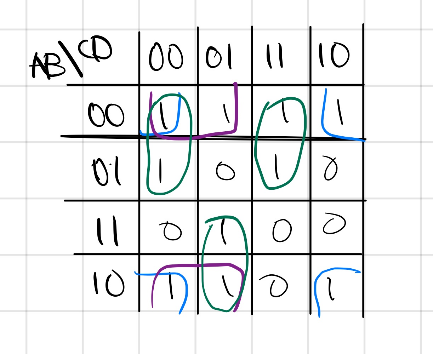 AB\CD 00 01 11 10
00 1 1 1 1
01 1 0 1 0
11 0 1 0 0
10 1 1 0 1